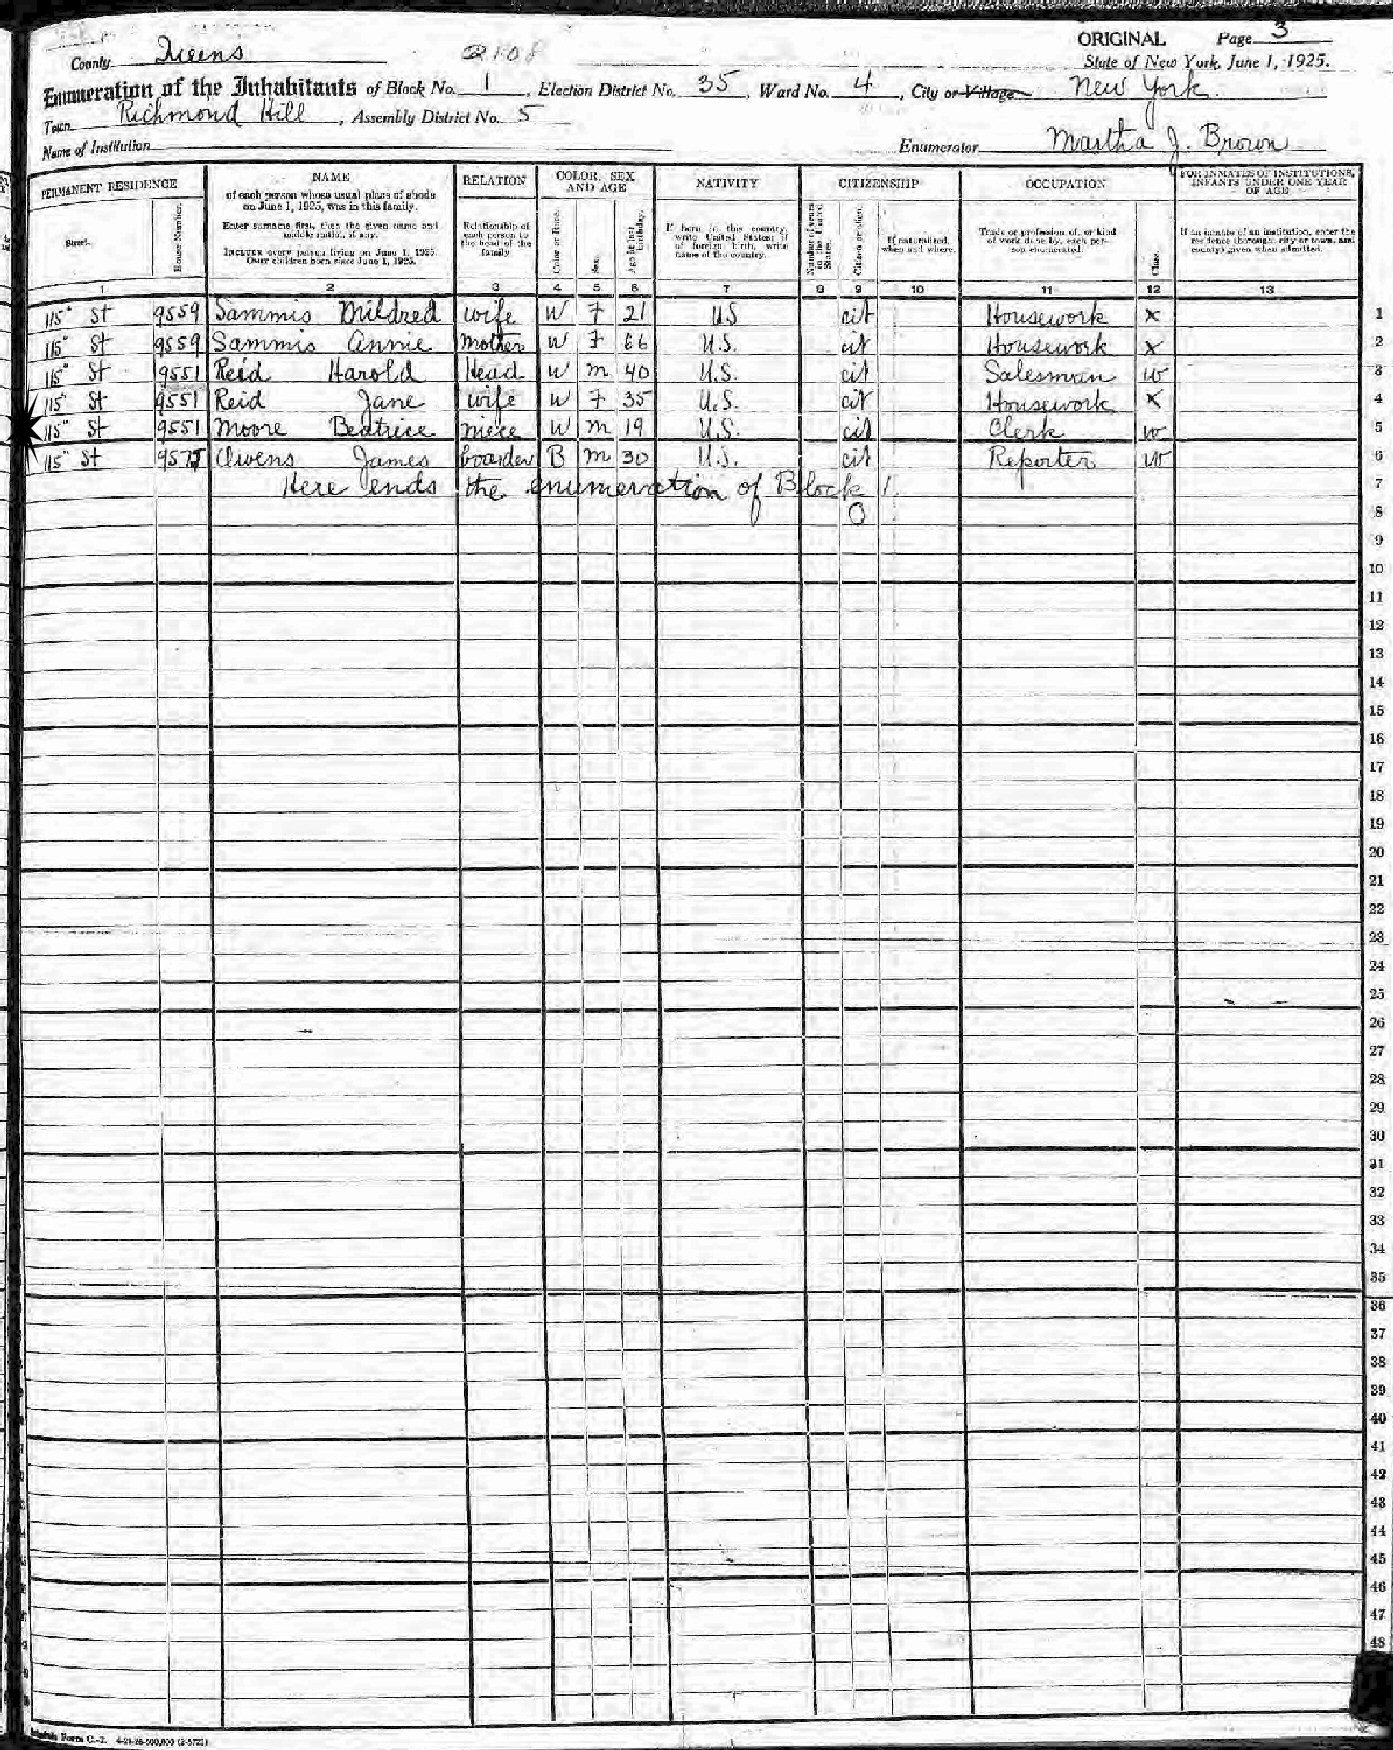 ORIGINAL Page 3
County Queens 2108
State of New York, June 1, 1925.
Enumeration of the Inhabitants of Block No. 1, Election District No. 35, Ward No. 4, City or Village New York
Town Richmond Hill, Assembly District No. 5
Name of Institution
Enumerator Martha J. Brown
PERMANENT RESIDENCE NAME RELATION COLOR, SEX AND AGE NATIVITY CITIZENSHIP OCCUPATION FOR INMATES OF INSTITUTIONS, INFANTS UNDER ONE YEAR OF AGE
Street. House Number.
of each person whose usual place of abode on June 1, 1925, was in this family.
Enter surname first, then the given name and middle initial, if any.
INCLUDE every person living on June 1, 1925. OMIT children born since June 1, 1925.
Relationship of each person to the head of the family
Color or Race. Sex. Age at last birthday.
If born in this country, write United States; if of foreign birth, write name of the country.
Number of years in the United States. Citizen or alien. If naturalized, when and where.
Trade or profession of, or kind of work done by, each person enumerated. Class.
If an inmate of an institution, enter the residence (borough, city or town, and county) given when admitted.
1 2 3 4 5 6 7 8 9 10 11 12 13
115" St 9559 Sammis Mildred wife W F 21 US cit Housework x 1
115" St 9559 Sammis Annie Mother W F 66 U.S. cit Housework x 2
115" St 9551 Reid Harold Head W m 40 U.S. cit Salesman w 3
115" St 9551 Reid Jane wife W F 35 U.S. cit Housework x 4
115" St 9551 Moore Beatrice niece W m 19 U.S. cit Clerk w 5
115" St Owens James boarder B m 30 U.S. cit Reporter w 6
Here ends the enumeration of Block 1. 7
8
9
10
11
12
13
14
15
16
17
18
19
20
21
22
23
24
25
26
27
28
29
30
31
32
33
34
35
36
37
38
39
40
41
42
43
44
45
46
47
48